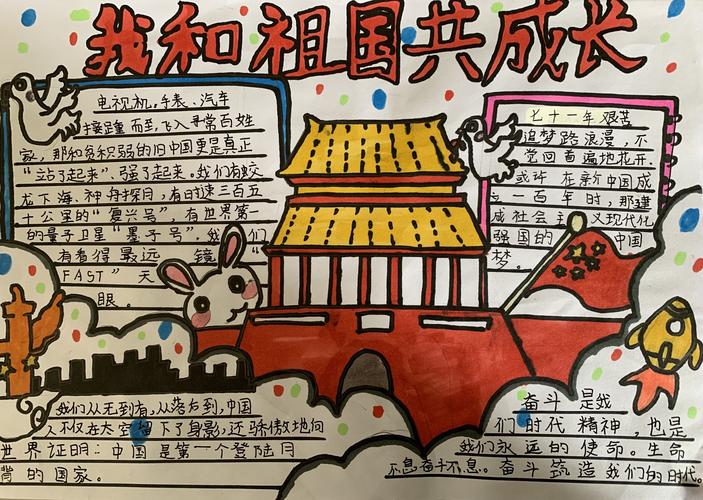 我和祖国共成长
电视机，手表、汽车
接踵而至，飞入寻常百姓
家，那和贫积弱的旧中国更是真正
“站了起来”、强了起来。我们有蛟
龙下海、神舟探月，有时速三百五
十公里的“复兴号”，有世界第一
的量子卫星“墨子号”，我们
有看得最远 镜“
FAST”天
眼。
七十一年艰苦
追梦路浪漫，不
觉回首遍地花开.
或许在新中国成
立一百年时，那建
成社会主义现代化
强国的 中国
梦。
我们从无到有，从落后到，中国
人不仅在太空留下了身影，还骄傲地向
世界证明：中国是第一个登陆月
背的国家。
奋斗是我
们时代精神，也是
我们永远的使命。生命
不息奋斗不息。奋斗筑造我们的时代。